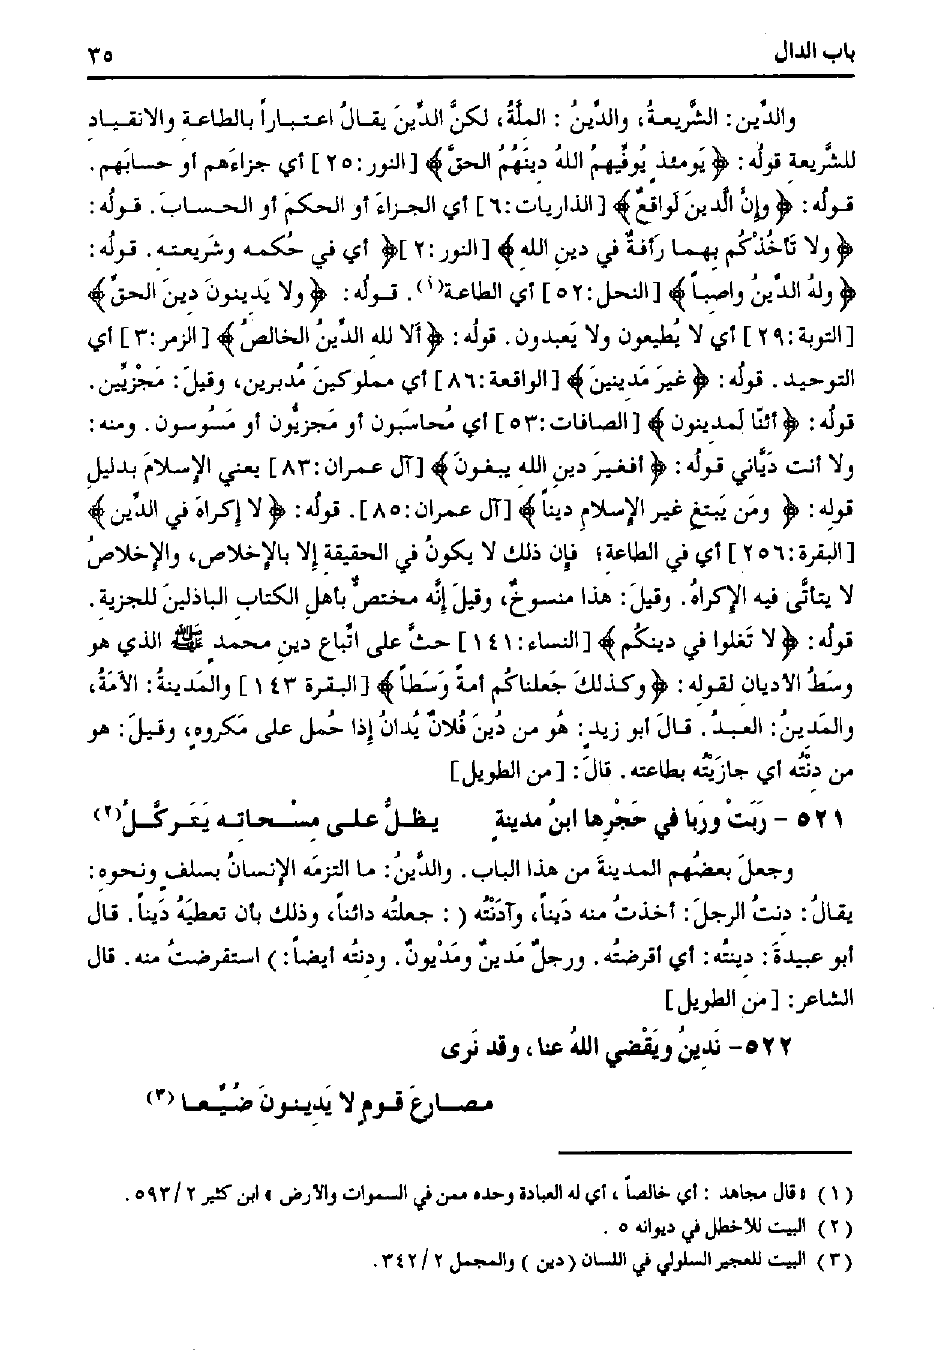 باب الدال ٣٥
والدِّين: الشَّريعةُ، والدِّينُ: الملَّةُ، لكنَّ الدِّينَ يقالُ اعتباراً بالطاعة والانقياد
للشَّريعة قولُه: ﴿ يَومئذ يُوفِّيهمُ اللهُ دينَهُمُ الحقَّ﴾ [النور:٢٥] أي جزاءَهم أو حسابَهم.
قولُه: ﴿ وإنَّ الدِّينَ لَواقعٌ﴾ [الذاريات:٦] أي الجزاءَ أو الحكمَ أو الحسابَ. قولُه:
﴿ ولا تَأخُذْكُم بهما رَأفةٌ في دين الله ﴾ [النور:٢]﴿ أي في حُكمه وشَريعته. قولُه:
﴿ ولهُ الدِّينُ واصباً ﴾ [النحل:٥٢] أي الطاعة(١). قولُه: ﴿ولا يَدينونَ دينَ الحقِّ﴾
[التوبة:٢٩] أي لا يُطيعون ولا يَعبدون. قولُه: ﴿ألا لله الدِّينُ الخالصُ﴾ [الزمر:٣] أي
التوحيد. قولُه: ﴿ غيرَ مَدينينَ﴾ [الواقعة:٨٦] أي مملوكينَ مُدبرين، وقيلَ: مَجْزيِّين.
قولُه: ﴿أئنَّا لَمدينون ﴾ [الصافات:٥٣] أي مُحاسَبون أو مَجزيُّون أو مَسُوسون. ومنه:
ولا أنت ديَّاني قولُه: ﴿ أفغيرَ دين الله يبغونَ﴾ [آل عمران:٨٣] يعني الإسلامَ بدليل
قوله: ﴿ ومَن يَبتغ غير الإسلام ديناً﴾ [آل عمران:٨٥]. قولُه: ﴿ لا إكراهَ في الدِّين﴾
[البقرة:٢٥٦] أي في الطاعة؛ فإن ذلك لا يكونُ في الحقيقة إلا بالإخلاص، والإخلاصُ
لا يتأتَّى فيه الإكراهُ. وقيلَ: هذا منسوخٌ، وقيلَ إنَّه مختصٌّ بأهل الكتاب الباذلينَ للجزية.
قولُه: ﴿لا تَغلوا في دينكُم﴾ [النساء:١٤١] حثٌّ على اتِّباع دين محمد ﷺ الذي هو
وسَطُ الأديان لقوله: ﴿وكذلكَ جَعلناكُم أمةً وَسَطاً﴾ [البقرة ١٤٣] والمَدينةُ: الأمَةُ،
والمَدينُ: العبدُ. قالَ أبو زيد: هُو من دُينَ فُلانٌ يُدانُ إذا حُمل على مَكروه، وقيلَ: هو
من دنْتُه أي جازَيْتُه بطاعته. قالَ: [من الطويل]
٥٢١ - رَبَتْ ورَبا في حَجْرها ابنُ مدينة يظلُّ على مسْحاته يَتَركَّلُ(٢)
وجعلَ بعضُهم المدينةَ من هذا الباب. والدَّينُ: ما التزمَه الإنسانُ بسلف ونحوه:
يقالُ: دنتُ الرجلَ: أخذتُ منه دَيناً، وآدَنْتُه (: جعلتُه دائناً، وذلك بأن تعطيَهُ دَيناً. قال
أبو عبيدةَ: دينتُه: أي أقرضتُه. ورجلٌ مَدينٌ ومَدْيونٌ. ودنتُه أيضاً:) استقرضتُ منه. قال
الشاعر: [من الطويل]
٥٢٢- نَدينُ ويَقْضي اللهُ عنا، وقد نَرى
مصارعَ قوم لا يَدينونَ ضُيَّعا (٣)
(١) «قال مجاهد : أي خالصاً ، أي له العبادة وحده ممن في السموات والأرض » ابن كثير ٢ /٥٩٣ .
(٢) البيت للأخطل في ديوانه ٥ .
(٣) البيت للعجير السلولي في اللسان (دين ) والمجمل ٢ /٣٤٢ .